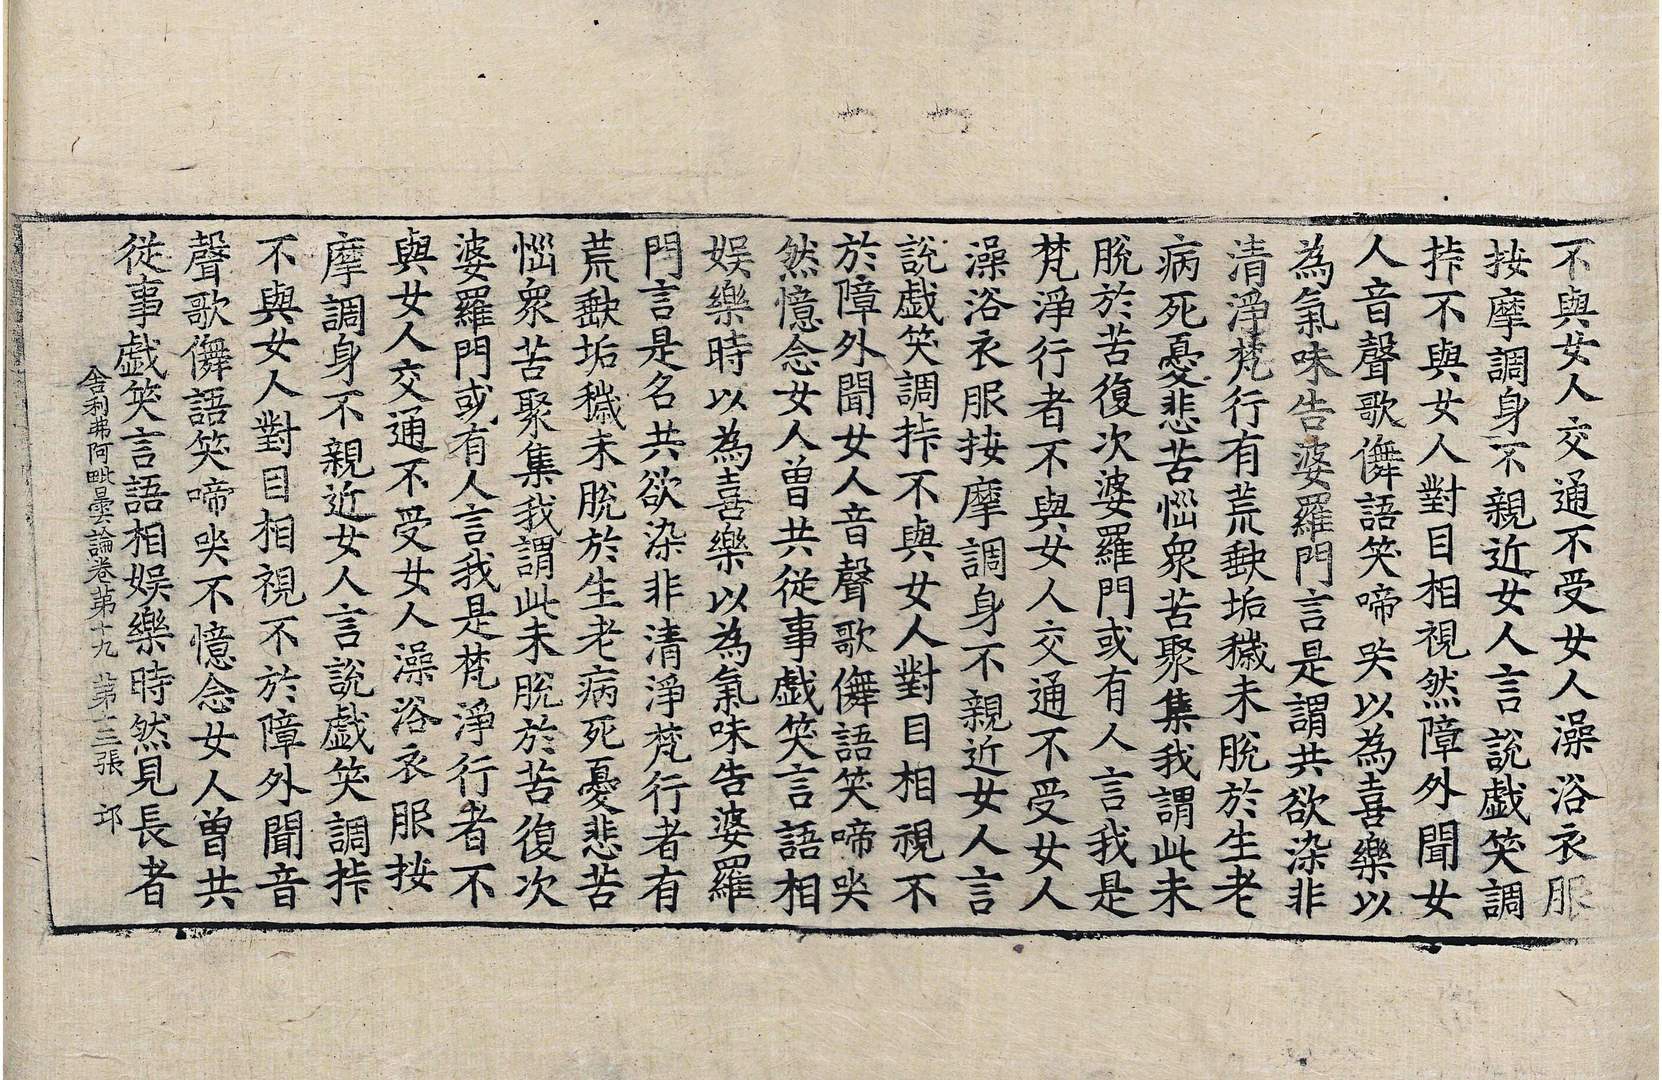 不與女人交通不受女人澡浴衣服
按摩調身不親近女人言說戲笑調
㧗不與女人對目相視然障外聞女
人音聲歌儛語笑啼哭以為喜樂以
為氣味告婆羅門言是謂共欲染非
清淨梵行有荒缺垢穢未脫於生老
病死憂悲苦惱眾苦聚集我謂此未
脫於苦復次婆羅門或有人言我是
梵淨行者不與女人交通不受女人
澡浴衣服按摩調身不親近女人言
說戲笑調㧗不與女人對目相視不
於障外聞女人音聲歌儛語笑啼哭
然憶念女人曾共從事戲笑言語相
娛樂時以為喜樂以為氣味告婆羅
門言是名共欲染非清淨梵行者有
荒缺垢穢未脫於生老病死憂悲苦
惱眾苦聚集我謂此未脫於苦復次
婆羅門或有人言我是梵淨行者不
與女人交通不受女人澡浴衣服按
摩調身不親近女人言說戲笑調㧗
不與女人對目相視不於障外聞音
聲歌儛語笑啼哭不憶念女人曾共
從事戲笑言語相娛樂時然見長者
舍利弗阿毗曇論卷第十九 第十三張 邱